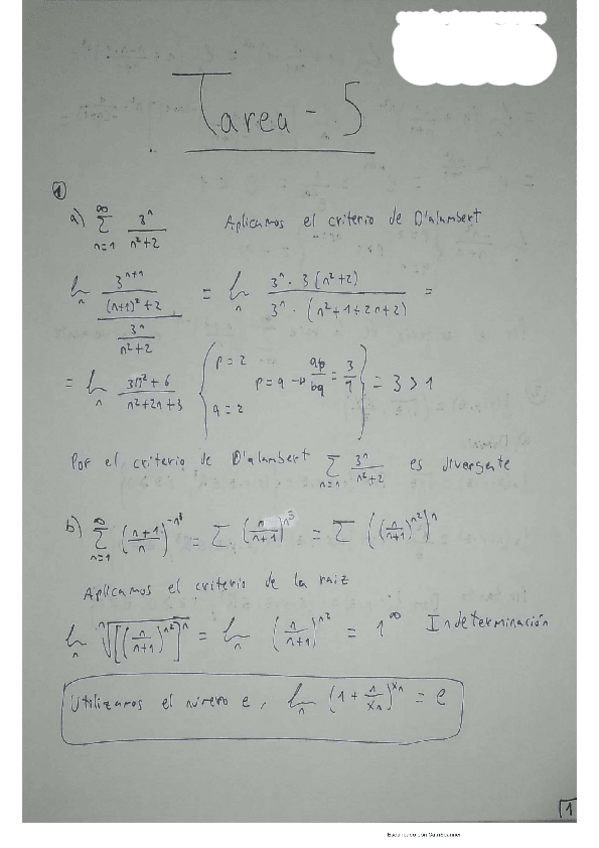 Tarea - 5
①
a) ∞ Σ n=1 3^n / (n²+2) Aplicamos el criterio de D'alambert
lim n (3^(n+1) / ((n+1)²+2)) / (3^n / (n²+2)) = lim n (3^n · 3 (n²+2)) / (3^n · (n²+1+2n+2)) =
= lim n (3n²+6) / (n²+2n+3) { p=2 q=2 p=q → ap/bq = 3/1 } = 3 > 1
Por el criterio de D'alambert Σ n=1 3^n / (n²+2) es divergente
b) ∞ Σ n=1 ((n+1)/n)^(-n³) = Σ (n/(n+1))^(n³) = Σ ((n/(n+1))^(n²))^n
Aplicamos el criterio de la raiz
lim n ⁿ√[((n/(n+1))^(n²)]^n = lim n (n/(n+1))^(n²) = 1^∞ Indeterminación
Utilizamos el número e, lim n (1 + 1/xn)^(xn) = e
1
Escaneado con CamScanner